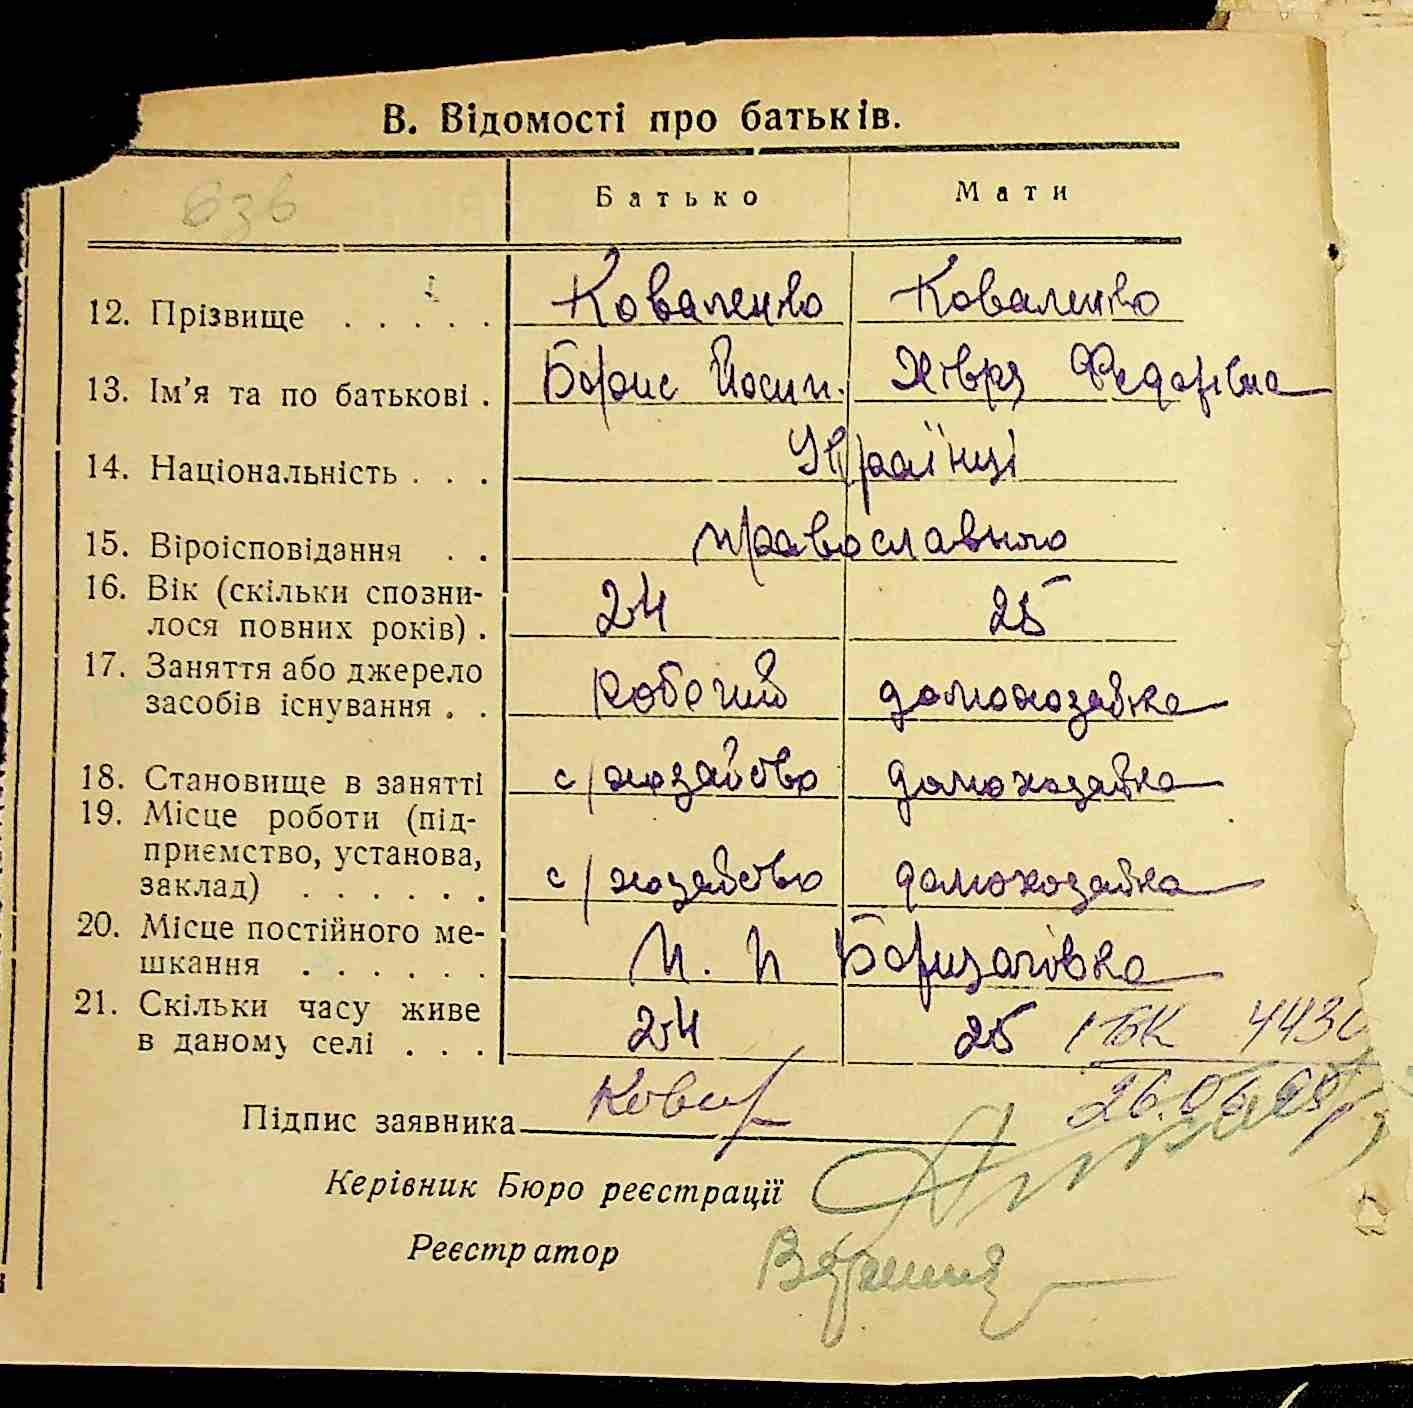 В. Відомості про батьків.
Батько Мати
12. Прізвище . . . . . Коваленко Коваленко
13. Ім'я та по батькові . Борис Йосип. Хівря Федорівна
14. Національність . . . Українці
15. Віроісповідання . . православного
16. Вік (скільки спозни-
лося повних років) . 24 25
17. Заняття або джерело
засобів існування . . робочий домохозяйка
18. Становище в занятті с/хозяйство домохозяйка
19. Місце роботи (під-
приємство, установа,
заклад) . . . . . . с/хозяйство домохозяйка
20. Місце постійного ме-
шкання . . . . . . м. п
21. Скільки часу живе
в даному селі . . . 24 25
Підпис заявника
Керівник Бюро реєстрації
Реєстратор